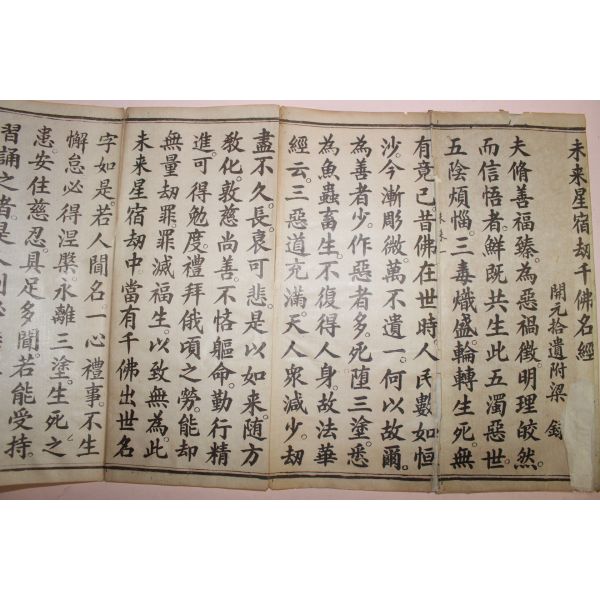 未来星宿劫千佛名經
開元拾遺附梁錄
夫脩善福臻。為惡禍徵。明理皎然。
而信悟者。鮮既共生此五濁惡世。
五陰煩惱。三毒熾盛。輪轉生死。無
有竟已。昔佛在世時。人民數如恒
沙。今漸彫微。萬不遺一。何以故爾。
為善者少。作惡者多。死墮三塗。悉
為魚蟲畜生。不復得人身。故法華
經云。三惡道充滿。天人衆減少。劫
盡不久。長衰可悲。是以如来随方
教化。敦慈尚善。不恡軀命。勤行精
進。可得勉度。禮拜俄頃之勞。能却
無量劫罪。罪滅福生。以致無為。此
未来星宿劫中當有千佛出世名
字如是。若人聞名。一心禮事。不生
懈怠。必得涅槃。永離三塗。生死之
患。安住慈忍。具足多聞。若能受持。
習誦之者。是人